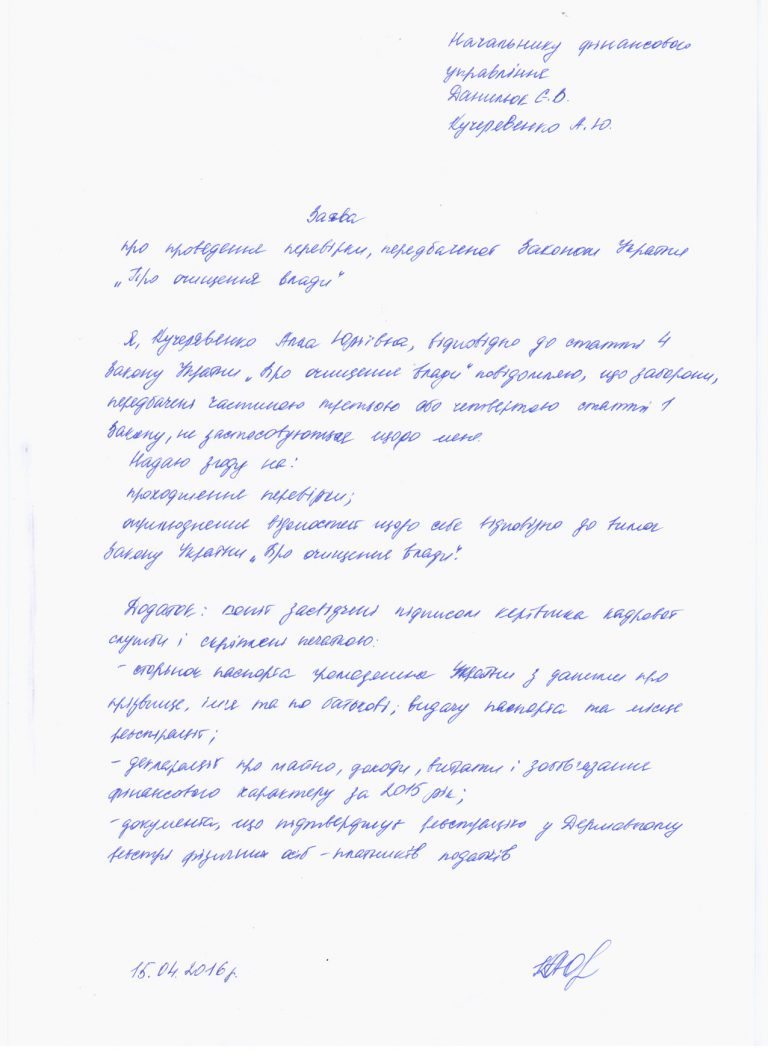 Начальнику фінансового
управління
Данилюк Є.В.
Кучеревенко А.Ю.
Заява
про проведення перевірки, передбаченої Законом України
„Про очищення влади"
Я, Кучерявенко Алла Юріївна, відповідно до статті 4
Закону України „Про очищення влади" повідомляю, що заборони,
передбачені частиною третьою або четвертою статті 1
Закону, не застосовуються щодо мене.
Надаю згоду на:
проходження перевірки;
оприлюднення відомостей щодо себе відповідно до вимог
Закону України „Про очищення влади".
Додаток: копії засвідчені підписом керівника кадрової
служби і скріплені печаткою:
- сторінок паспорта громадянина України з даними про
прізвище, ім'я та по батькові, видачу паспорта та місце
реєстрації;
- декларації про майно, доходи, витрати і зобов'язання
фінансового характеру за 2015 рік;
- документа, що підтверджує реєстрацію у Державному
реєстрі фізичних осіб - платників податків
15.04.2016р.